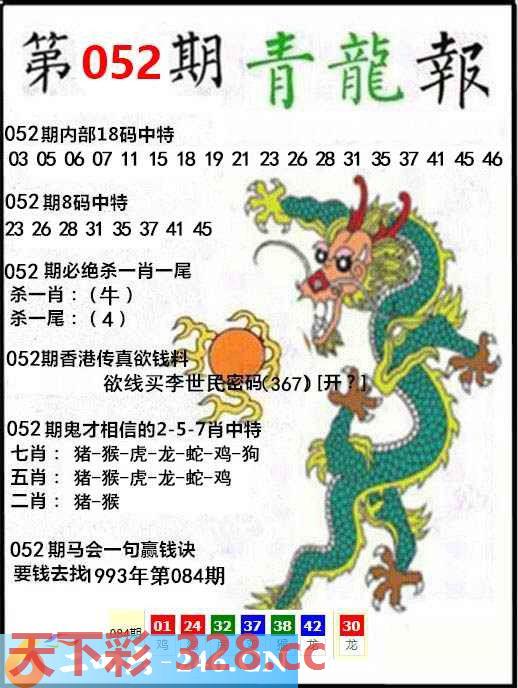 第052期青龍報
052期内部18码中特
03 05 06 07 11 15 18 19 21 23 26 28 31 35 37 41 45 46
052期8码中特
23 26 28 31 35 37 41 45
052期必绝杀一肖一尾
杀一肖：（牛）
杀一尾：（4）
052期香港传真欲钱料
欲线买李世民密码(367) [开？]
052期鬼才相信的2-5-7肖中特
七肖： 猪-猴-虎-龙-蛇-鸡-狗
五肖： 猪-猴-虎-龙-蛇-鸡
二肖： 猪-猴
052期马会一句赢钱诀
要钱去找1993年第084期
084期 01 24 32 37 38 42 30
鸡 龙 龙
天下彩-328.cc